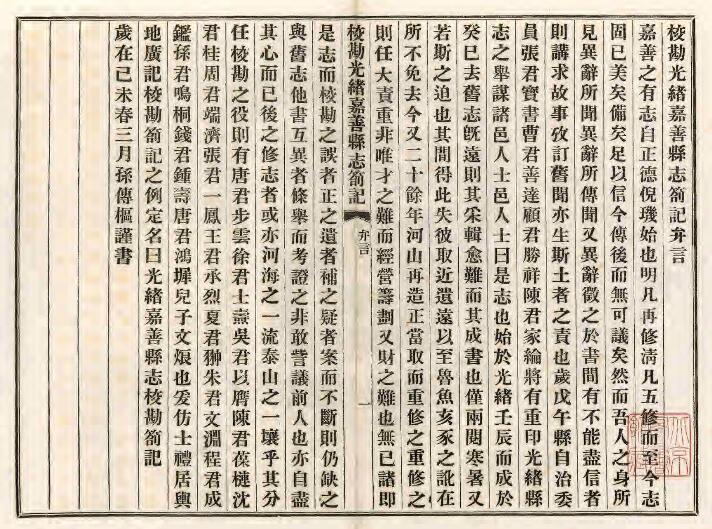 校勘光緒嘉善縣志劄記弁言
嘉善之有志自正德倪璣始也明凡再修淸凡五修而至今志
固已美矣備矣足以信今傳後而無可議矣然而吾人之身所
見異辭所聞異辭所傳聞又異辭徵之於書間有不能盡信者
則講求故事攷訂舊聞亦生斯土者之責也歲戊午縣自治委
員張君寶書曹君善達顧君勝祥陳君家綸將有重印光緒縣
志之舉謀諸邑人士邑人士曰是志也始於光緒壬辰而成於
癸巳去舊志旣遠則其采輯愈難而其成書也僅兩閱寒暑又
若斯之迫也其間得此失彼取近遺遠以至魯魚亥豕之訛在
所不免去今又二十餘年河山再造正當取而重修之重修之
則任大責重非唯才之難而經營籌劃又財之難也無已諸即
校勘光緒嘉善縣志劄記
弁言
一
是志而校勘之誤者正之遺者補之疑者案而不斷則仍缺之
與舊志他書互異者條舉而考證之非敢訾議前人也亦自盡
其心而已後之修志者或亦河海之一流泰山之一壤乎其分
任校勘之役則有唐君步雲徐君士燾吳君以膺陳君葆槤沈
君桂周君端濟張君一鳳王君承烈夏君獅朱君文淵程君成
鑑孫君鳴桐錢君鍾壽唐君鴻墀兒子文煨也爰仿士禮居輿
地廣記校勘劄記之例定名曰光緒嘉善縣志校勘劄記
歲在己未春三月孫傳樞謹書